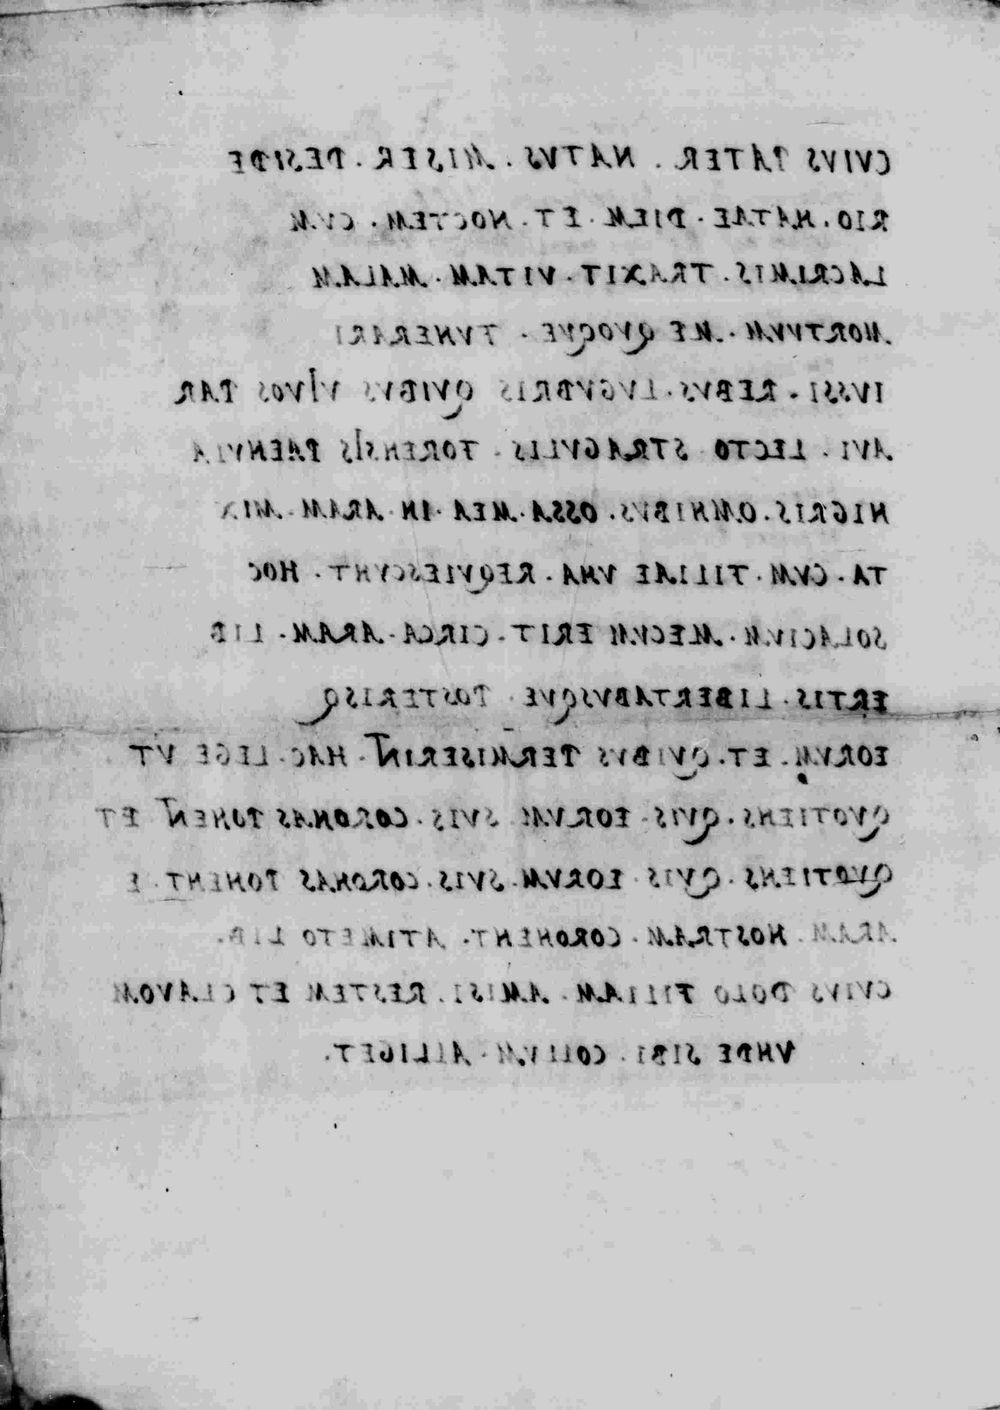 CVIVS PATER . NATVS . MISER . DESIDE
RIO . NATAE . DIEM . ET . NOCTEM . CVM
LACRIMIS . TRAXIT . VITAM . MALAM
MORTVVM . ME QVOQVE . FVNERARI
IVSSI . REBVS . LVGVBRIS QVIBVS VIVOS PAR
AVI . LECTO STRAGVLIS . FORENSIS PAENVLA
NIGRIS . OMNIBVS . OSSA . MEA . IN . ARAM . MIX
TA . CVM . FILIAE VNA . REQVIESCVNT . HOC
SOLACIVM . MECVM ERIT . CIRCA . ARAM . LIB
ERTIS . LIBERTABVSQVE . POSTERISQ
EORVM . ET . QVIBVS PERMISERINT . HAC . LEGE VT
QVOTIENS . QVIS . EORVM SVIS . CORONAS PONENT ET
QVOTIENS . QVIS EORVM . SVIS . CORONAS PONENT . E
ARAM . NOSTRAM . CORONENT . ATIMETO LIB .
CVIVS DOLO FILIAM . AMISI . RESTEM ET CLAVOM
VNDE SIBI . COLLVM . ALLIGET .